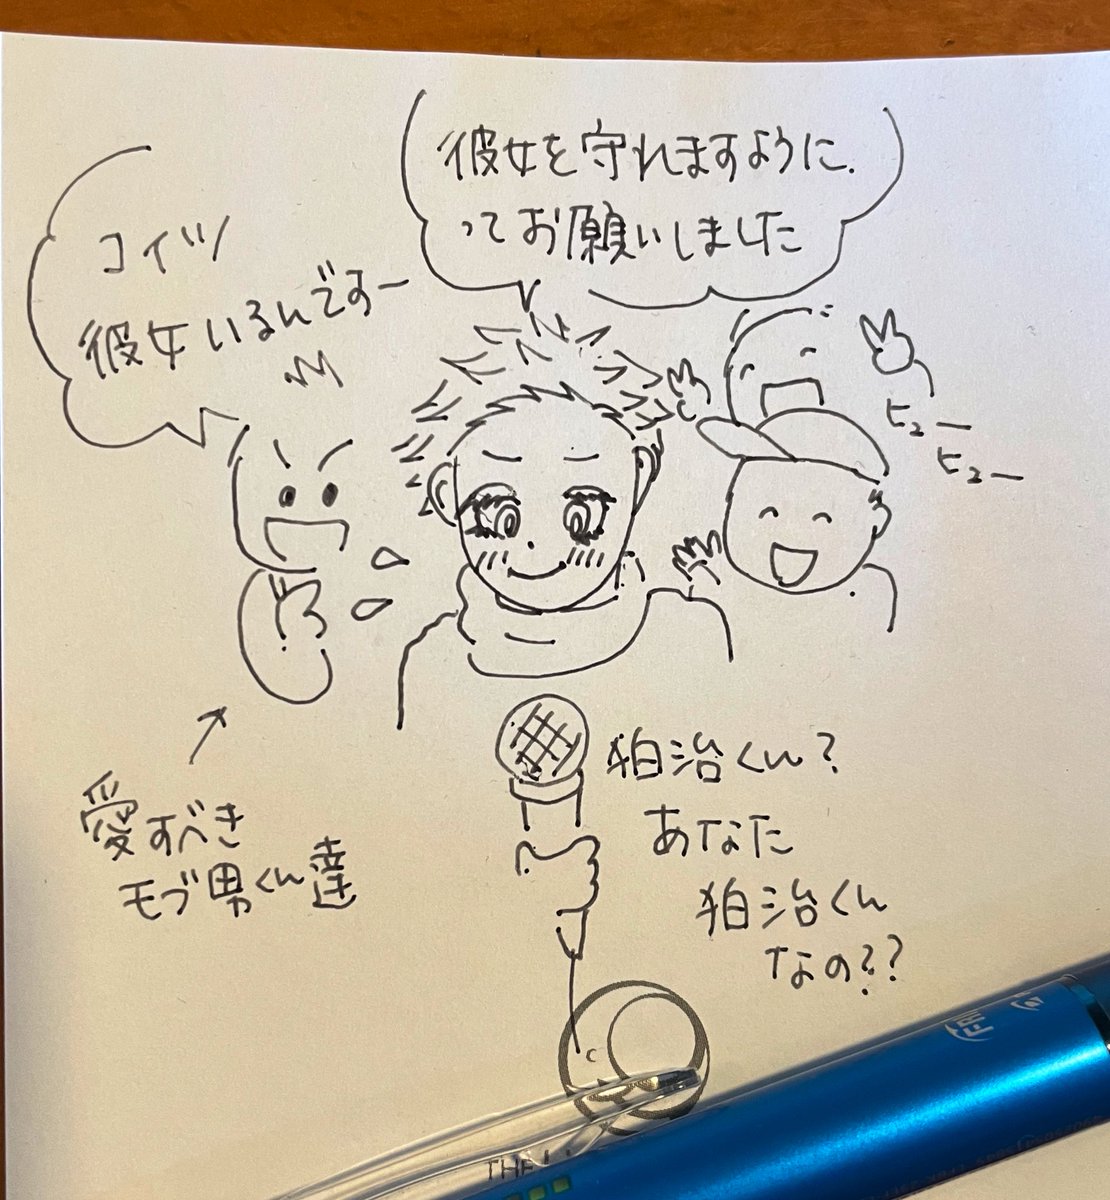 彼女を守れますように.
ってお願いしました
コイツ
彼女いるんですー
ヒューヒュー
愛すべき
モブ男くん達
狛治くん?
あなた
狛治くん
なの??
THE